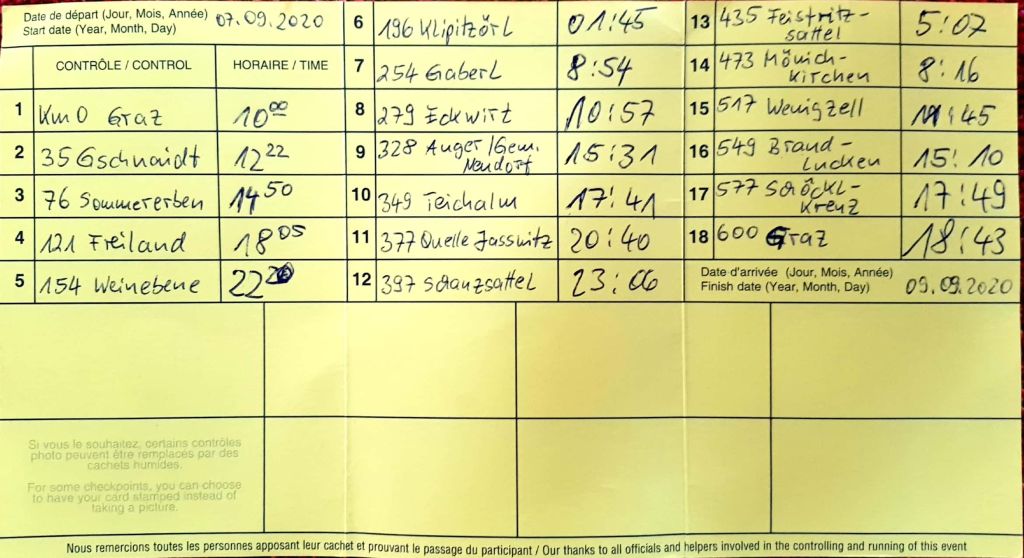 Date de départ (Jour, Mois, Année) 07.09.2020
Start date (Year, Month, Day)
CONTRÔLE / CONTROL HORAIRE / TIME
1 Km 0 Graz 10 00
2 35 Gschnaidt 12 22
3 76 Sommererben 14 50
4 121 Freiland 18 05
5 154 Weinebene 22 20
6 196 Klipitzörl 01:45
7 254 Gaberl 8:54
8 279 Eckwirt 10:57
9 328 Anger/Gem. 15:31
Neudorf
10 349 Teichalm 17:41
11 377 Quelle Jassnitz 20:40
12 397 Schanzsattel 23:06
13 435 Feistritz- 5:07
sattel
14 473 Mönich- 8:16
kirchen
15 517 Wenigzell 11:45
16 549 Brand- 15:10
lucken
17 577 Schöckl- 17:49
kreuz
18 600 Graz 18:43
Date d'arrivée (Jour, Mois, Année)
Finish date (Year, Month, Day) 09.09.2020
Si vous le souhaitez, certains contrôles
photo peuvent être remplacés par des
cachets humides.
For some checkpoints, you can choose
to have your card stamped instead of
taking a picture.
Nous remercions toutes les personnes apposant leur cachet et prouvant le passage du participant / Our thanks to all officials and helpers involved in the controlling and running of this event